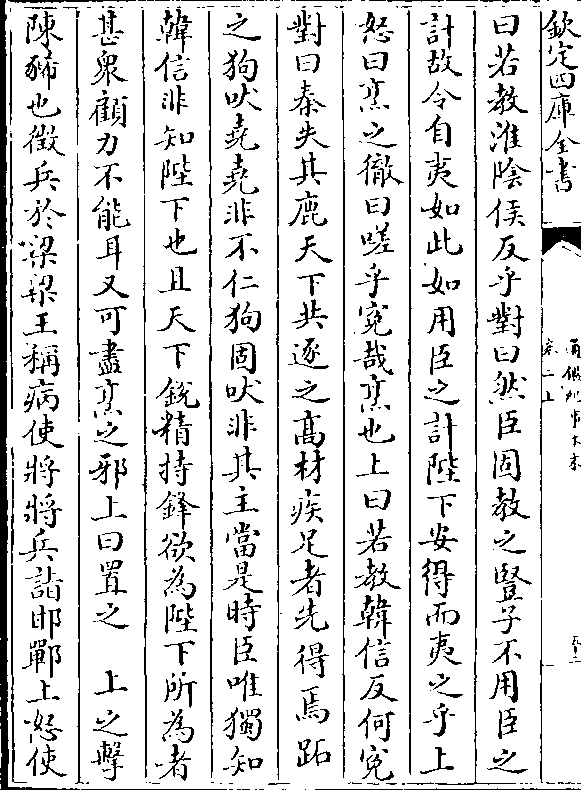 欽定四庫全書
曰若教淮陰侯反乎對曰然臣固教之豎子不用臣之
計故令自夷如此如用臣之計陛下安得而夷之乎上
怒曰烹之徹曰嗟乎寃哉烹也上曰若教韓信反何寃
對曰秦失其鹿天下共逐之高材疾足者先得焉跖
之狗吠堯堯非不仁狗固吠非其主當是時臣唯獨知
韓信非知陛下也且天下銳精持鋒欲為陛下所為者
甚衆顧力不能耳又可盡烹之邪上曰置之　上之擊
陳豨也徵兵於梁梁王稱病使將將兵詣邯鄲上怒使